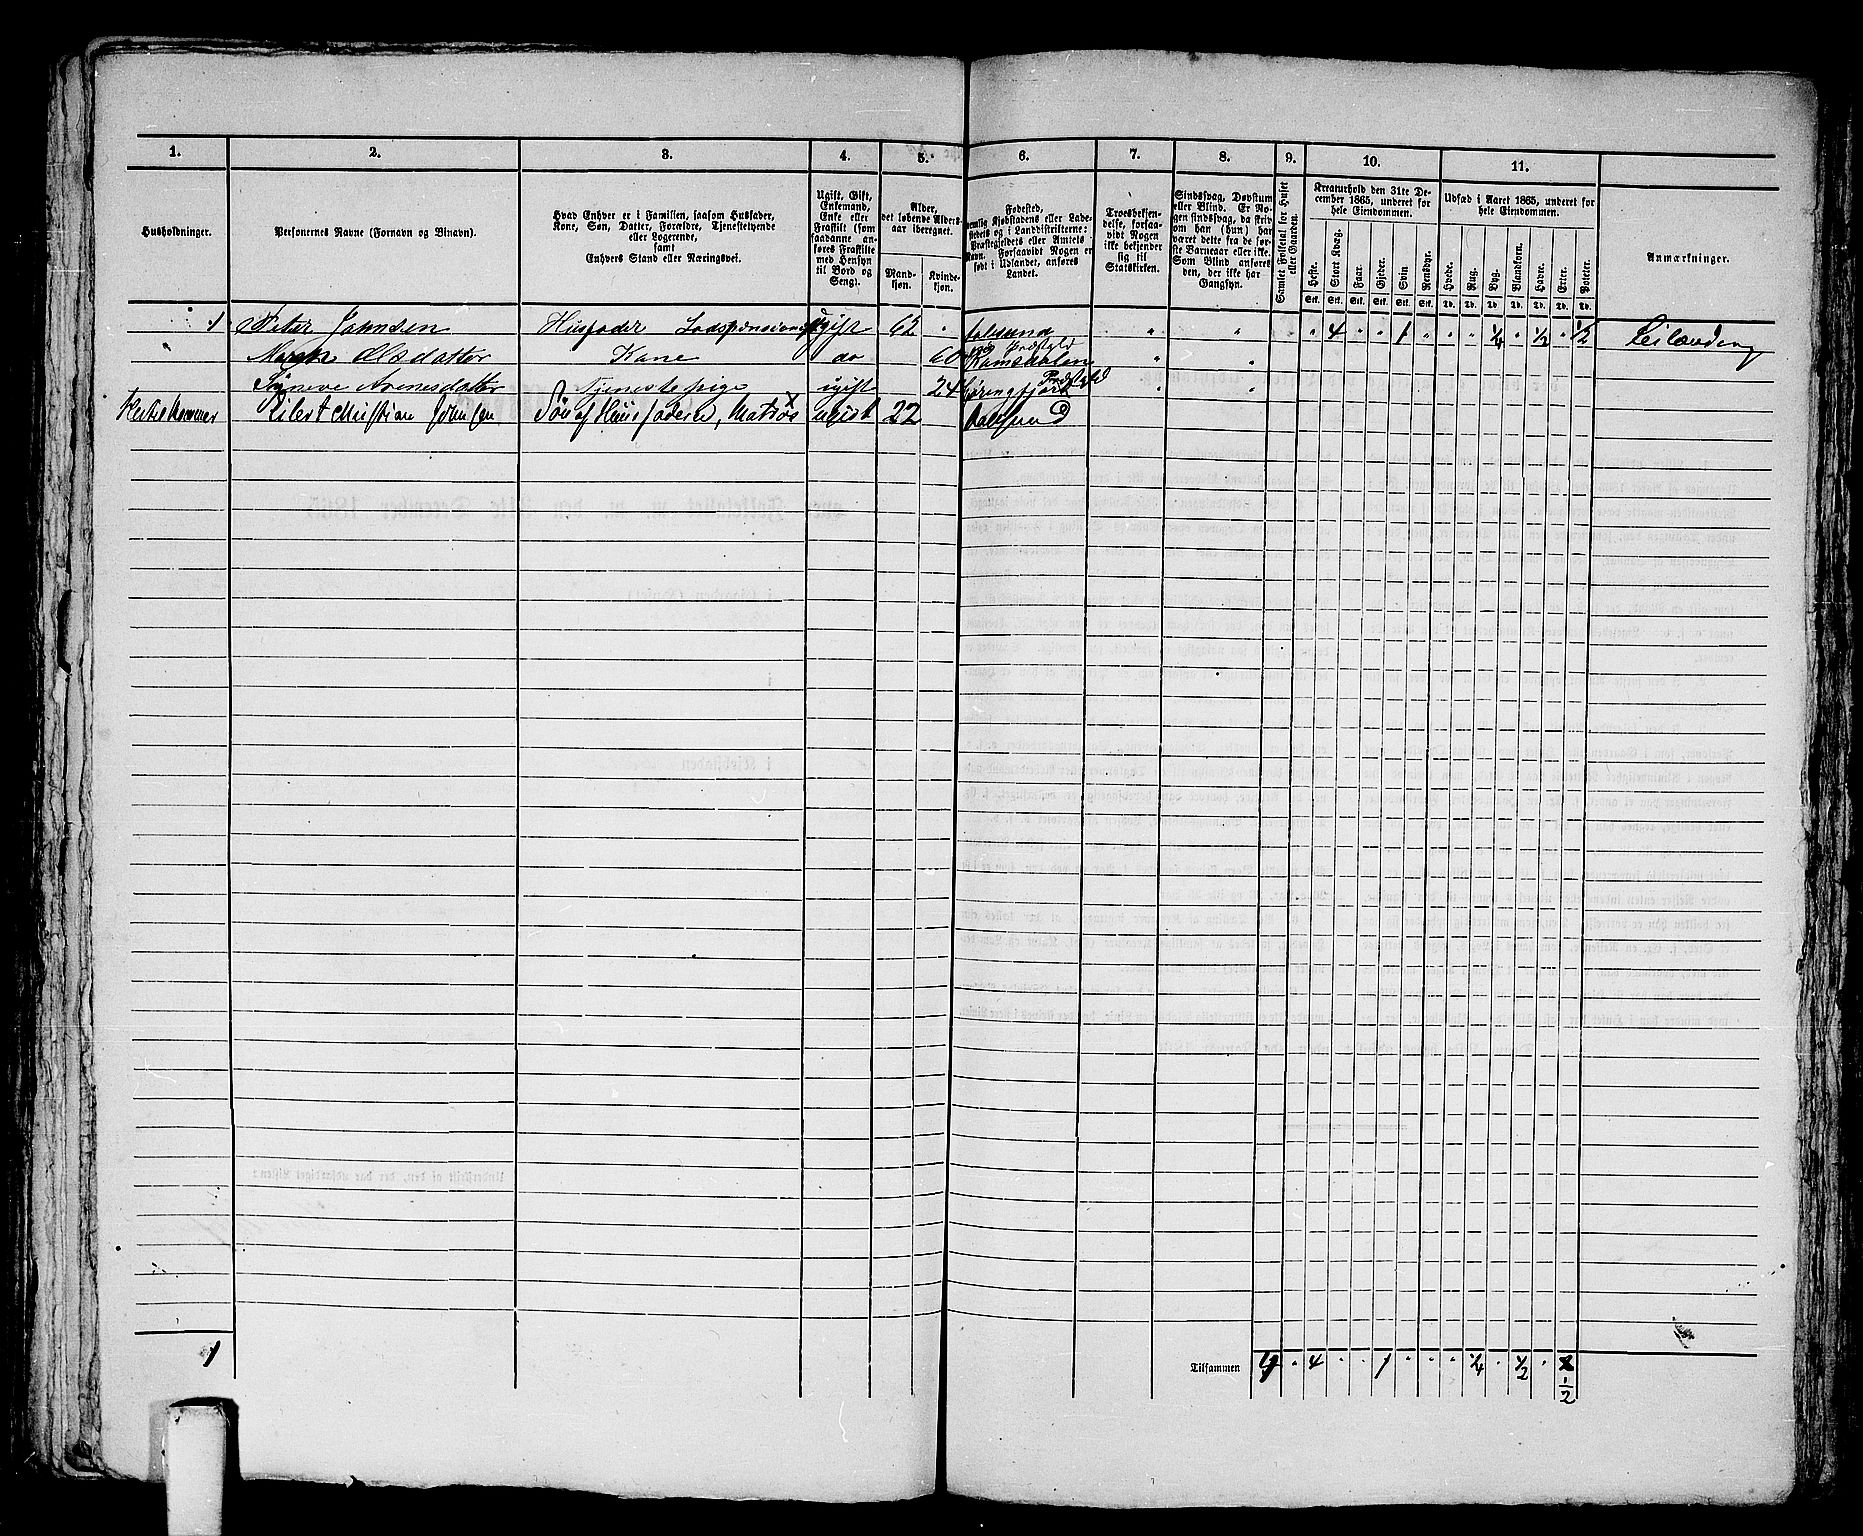 1. 2. 3. 4. 5. 6. 7. 8. 9. 10. 11.
Husholdninger.
Personernes Navne (Fornavn og Binavn).
Hvad Enhver er i Familien, saasom Husfader,
Kone, Søn, Datter, Forældre, Tjenestetyende
eller Logerende,
samt
Enhvers Stand eller Næringsvei.
Ugift, Gift,
Enkemand,
Enke eller
Fraskilt (som
saadanne an-
føres Fraskilte
med Hensyn
til Bord og
Seng).
Alder,
det løbende Alders-
aar iberegnet.
Mand-
kjøn.
Kvinde-
kjøn.
Fødested,
nemlig Kjøbstadens eller Lade-
stedets og i Landdistrikterne:
Præstegjeldets eller Amtets
Navn. Forsaavidt Nogen er
født i Udlandet, anføres
Landet.
Troesbekjen-
delse, forsaa-
vidt Nogen
ikke bekjender
sig til
Statskirken.
Sindssvag, Døvstum
eller Blind. Er No-
gen sindssvag, da skriv
om han (hun) har
været dette fra de før-
ste Barneaar eller ikke.
Som Blind anføres
den, der ikke har
Gangsyn.
Samlet Folketal for Huset
eller Gaarden.
Kreaturhold den 31te De-
cember 1865, underet for
hele Eiendommen.
Heste. Stort Kvæg. Faar. Gjeder. Svin Rensdyr.
Stk. Stk. Stk. Stk. Stk. Stk.
Udsæd i Aaret 1865, underet for
hele Eiendommen.
Hvede. Rug. Byg. Blandkorn. Havre. Erter. Poteter.
Td. Td. Td. Td. Td. Td. Td.
Anmærkninger.
1 Peter Johnsen Husfader Lodspensionist gift 62 " Aalesund " " " 4 " " 1 " " " ¼ " ½ " ½ Leilænding
Maren Olsdatter Kone do 60 Præstgjeld Romsdalen " "
Arnesdatter Tjenestepige ugift 24 Præstgjeld " "
Eilert Christian Johnsen Søn af Huusfaderen, Matros ugift 22 Aalesund
1 Tilsammen 4 " 4 " " 1 " " " ¼ " ½ " ½